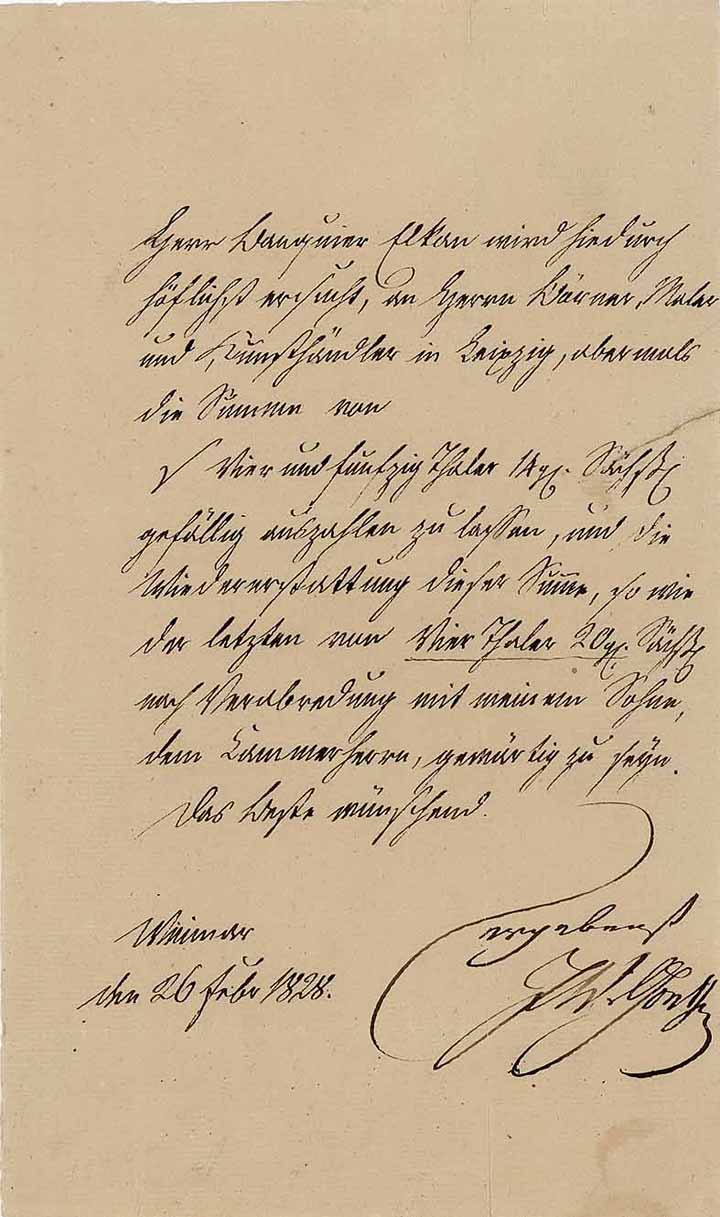 Herr Banquier Elkan wird hiedurch
höflichst ersucht, an Herrn Börner, Maler
und Kunsthändler in Leipzig, abermals
die Summe von
Vier und funfzig Thaler 14 gr. Sächs.
gefällig auszahlen zu lassen, und die
Wiedererstattung dieser Summe, so wie
der letzten von Vier Thaler 20 gr. Sächs.
nach Verabredung mit meinem Sohne,
dem Cammerherrn, gewärtig zu seyn.
Das Beste wünschend.
ergebenst
Weimar
den 26 Febr 1828.
JWvGoethe